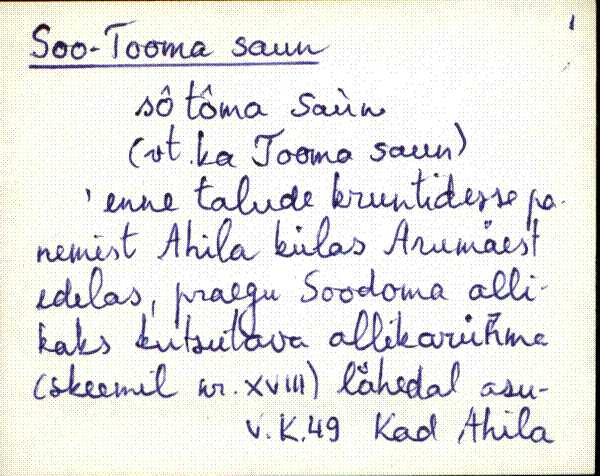 1
Soo-Tooma saun
sô tôma saùn
(vt. ka Tooma saun)
' enne talude kruntidesse pa-
nemist Ahila külas Arumäest
edelas, praegu Soodoma alli-
kaks kutsutava allikarühma
(skeemil nr. XVIII) lähedal asu-
v. K.49 Kad Ahila